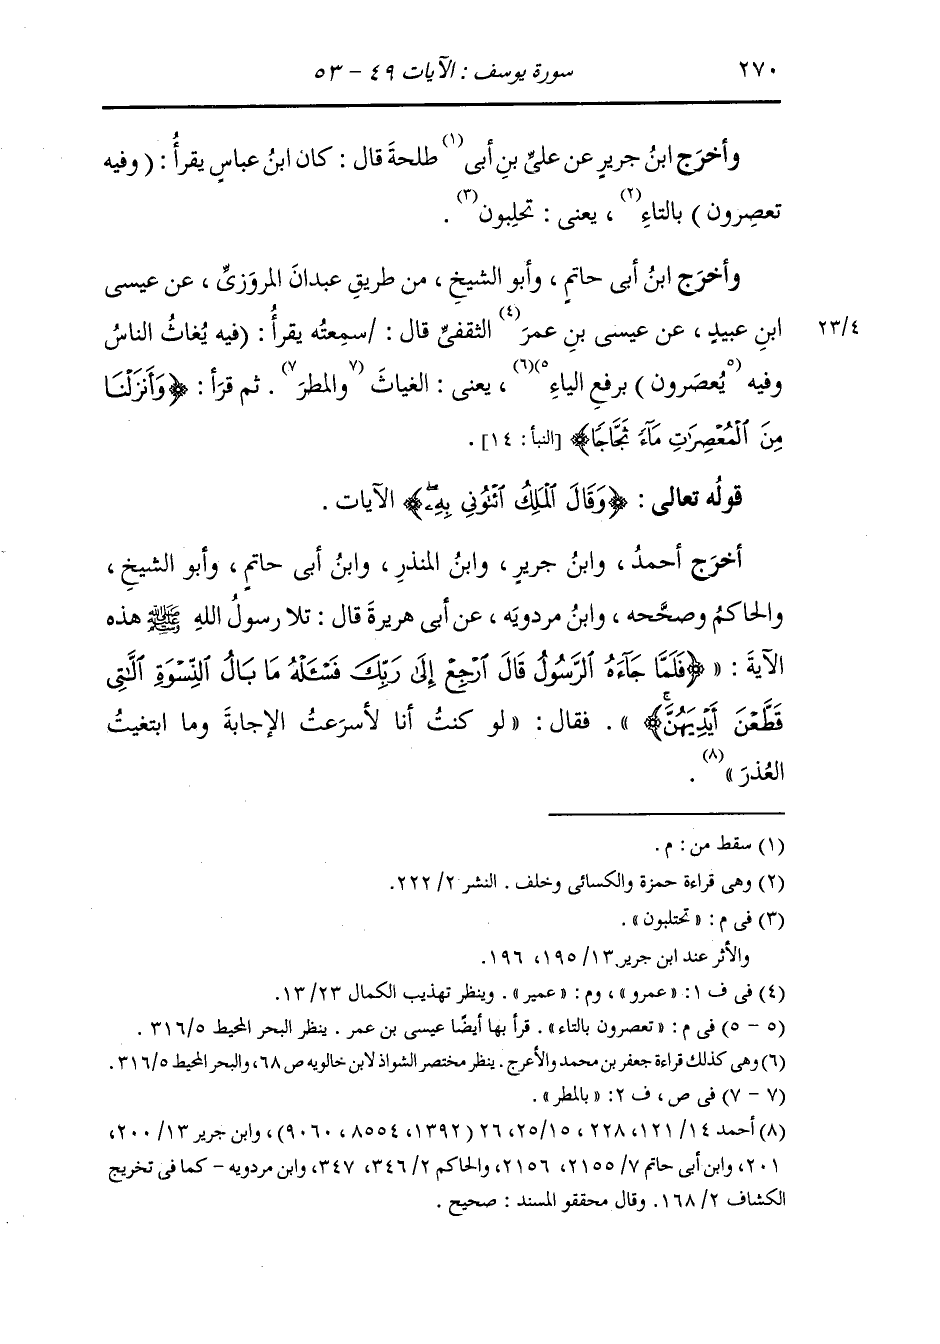 ٢٧٠ سورة يوسف : الآيات ٤٩ - ٥٣
وأخرَج ابنُ جريرٍ عن علىِّ بنِ أبى(١) طلحةَ قال : كان ابنُ عباسٍ يقرأُ : ( وفيه
تعصِرون ) بالتاءِ(٢) ، يعنى : تحلِبون(٣) .
وأخرَج ابنُ أبى حاتمٍ ، وأبو الشيخِ ، من طريقِ عبدانَ المروَزىِّ ، عن عيسى
٢٣/٤ ابنِ عبيدٍ ، عن عيسى بنِ عمرَ(٤) الثقفىِّ قال : /سمِعتُه يقرأُ : (فيه يُغاثُ الناسُ
وفيه (٥يُعصَرون ) برفعِ الياءِ٥)(٦) ، يعنى : الغياثَ (٧والمطرَ٧) . ثم قرَأ : ﴿وَأَنزَلْنَا
مِنَ ٱلْمُعْصِرَٰتِ مَآءً ثَجَّاجًا﴾ [النبأ : ١٤] .
قولُه تعالى : ﴿وَقَالَ ٱلْمَلِكُ ٱئْتُونِى بِهِۦۖ﴾ الآيات .
أخرَج أحمدُ ، وابنُ جريرٍ ، وابنُ المنذرِ ، وابنُ أبى حاتمٍ ، وأبو الشيخِ ،
والحاكمُ وصحَّحه ، وابنُ مردويَه ، عن أبى هريرةَ قال : تلا رسولُ اللهِ ﷺ هذه
الآيةَ : « ﴿فَلَمَّا جَآءَهُ ٱلرَّسُولُ قَالَ ٱرْجِعْ إِلَىٰ رَبِّكَ فَسْـَٔلْهُ مَا بَالُ ٱلنِّسْوَةِ ٱلَّٰتِى
قَطَّعْنَ أَيْدِيَهُنَّۚ﴾ » . فقال : « لو كنتُ أنا لأسرَعتُ الإجابةَ وما ابتغيتُ
العُذرَ »(٨) .
(١) سقط من : م .
(٢) وهى قراءة حمزة والكسائى وخلف . النشر ٢/ ٢٢٢.
(٣) فى م : « تحتلبون » .
والأثر عند ابن جرير ١٣/ ١٩٥، ١٩٦.
(٤) فى ف ١: « عمرو » ، وم : « عمير » . وينظر تهذيب الكمال ٢٣/ ١٣.
(٥ - ٥) فى م : « تعصرون بالتاء» . قرأ بها أيضًا عيسى بن عمر . ينظر البحر المحيط ٣١٦/٥ .
(٦) وهى كذلك قراءة جعفر بن محمد والأعرج . ينظر مختصر الشواذ لابن خالويه ص ٦٨، والبحر المحيط ٣١٦/٥ .
(٧ - ٧) فى ص ، ف ٢: « بالمطر » .
(٨) أحمد ١٤/ ١٢١، ٢٢٨ ، ١٥/ ٢٥، ٢٦ (١٣٩٢، ٨٥٥٤ ، ٩٠٦٠) ، وابن جرير ١٣/ ٢٠٠،
٢٠١، وابن أبى حاتم ٧/ ٢١٥٥، ٢١٥٦، والحاكم ٢/ ٣٤٦، ٣٤٧، وابن مردويه - كما فى تخريج
الكشاف ٢/ ١٦٨. وقال محققو المسند : صحيح .